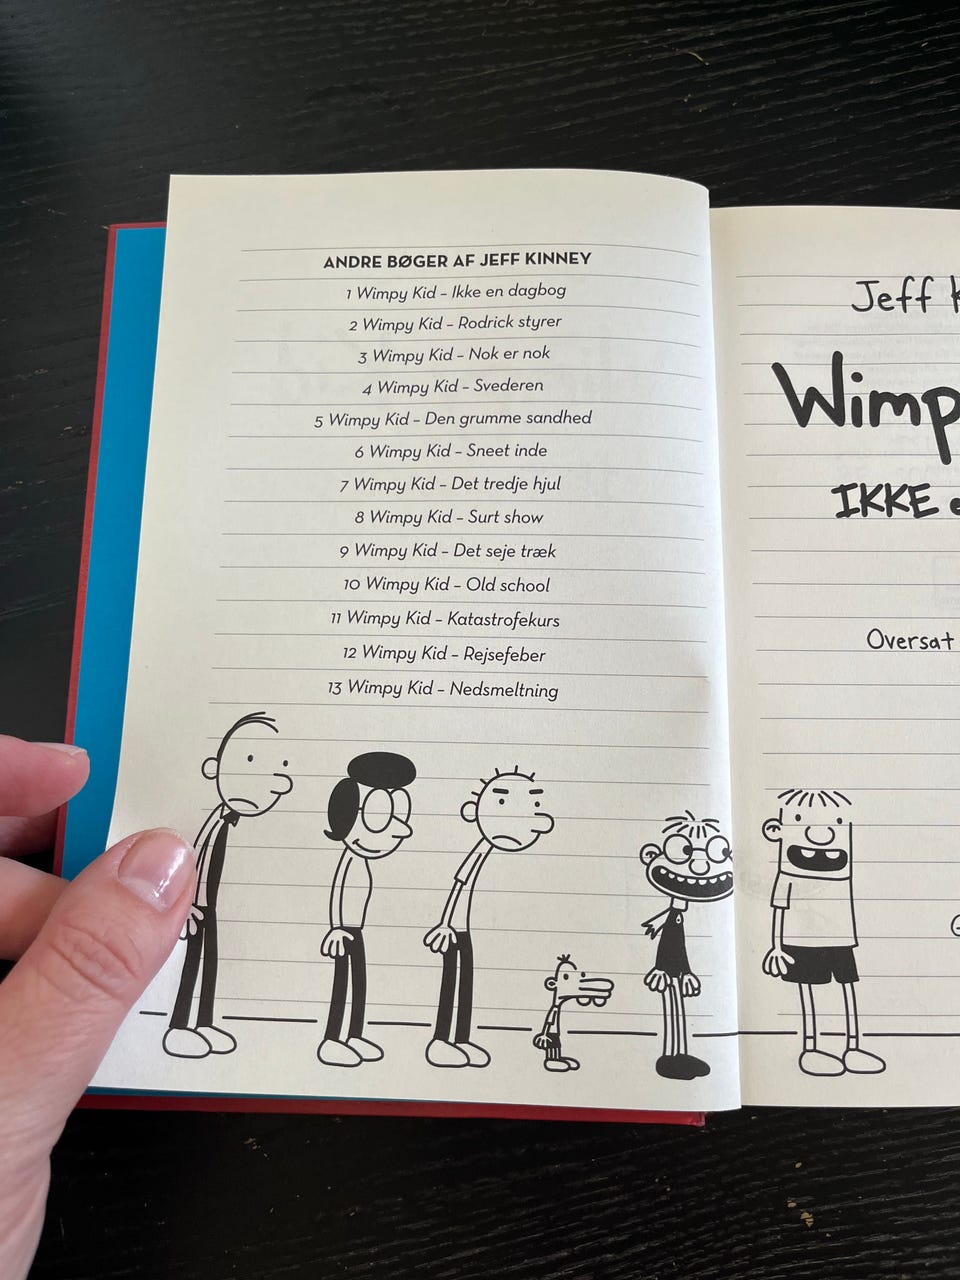 ANDRE BØGER AF JEFF KINNEY
1 Wimpy Kid – Ikke en dagbog
2 Wimpy Kid – Rodrick styrer
3 Wimpy Kid – Nok er nok
4 Wimpy Kid – Svederen
5 Wimpy Kid – Den grumme sandhed
6 Wimpy Kid – Sneet inde
7 Wimpy Kid – Det tredje hjul
8 Wimpy Kid – Surt show
9 Wimpy Kid – Det seje træk
10 Wimpy Kid – Old school
11 Wimpy Kid – Katastrofekurs
12 Wimpy Kid – Rejsefeber
13 Wimpy Kid – Nedsmeltning
Jeff
Wimp
IKKE
Oversat